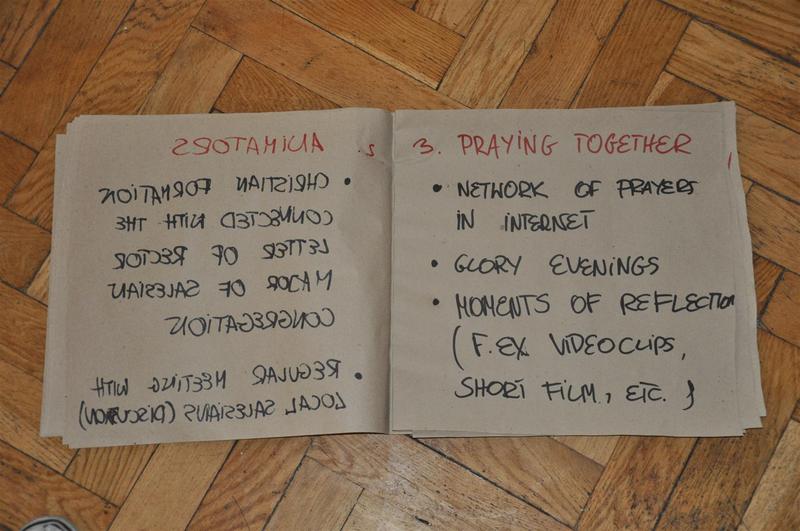 2. ANIMATORS
• CHRISTIAN FORMATION
CONNECTED WITH THE
LETTER OF RECTOR
MAJOR OF SALESIAN
CONGREGATION
• REGULAR MEETING WITH
LOCAL SALESIANS (DISCUSION)
3. PRAYING TOGETHER
• NETWORK OF PRAYERS
IN INTERNET
• GLORY EVENINGS
• MOMENTS OF REFLECTION
(F.EX. VIDEOCLIPS,
SHORT FILM, ETC.)